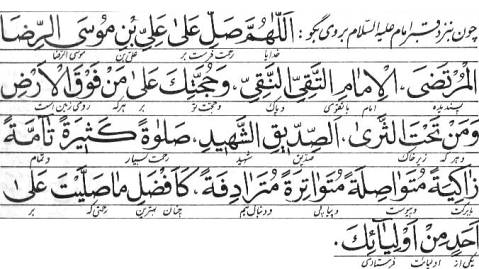 چون بنزد قبر امام علیه السلام بروی بگو: اَللّٰهُمَّ صَلِّ عَلیٰ عَلِیِّ بْنِ مُوسَی الرِّضَا
خدایا رحمت فرست بر علی بن موسی الرضا
الْمُرْتَضیٰ، الْاِمٰامِ التَّقِیِّ النَّقِیِّ، وَحُجَّتِكَ عَلیٰ مَنْ فَوْقَ الْاَرْضِ
پسندیده امام باتقوی و پاک و حجت تو بر هرکه روی زمین است
وَمَنْ تَحْتَ الثَّریٰ، اَلصِّدّیقِ الشَّهیدِ، صَلوٰةً كَثیرَةً تٰآمَّةً
و هر که زیر خاک صدیق شهید رحمت بسیار و تمام
زٰاكِیَةً مُتَوٰاصِلَةً مُتَوٰاتِرَةً مُتَرٰادِفَةً، كَاَفْضَلِ مٰا صَلَّیْتَ عَلیٰ
با برکت و پیوست و پیاپی و دنبال هم چنان بهترین رحمتی که بر
اَحَدٍ مِنْ اَوْلِیٰآئِكَ.
یکی از اولیائت فرستادی